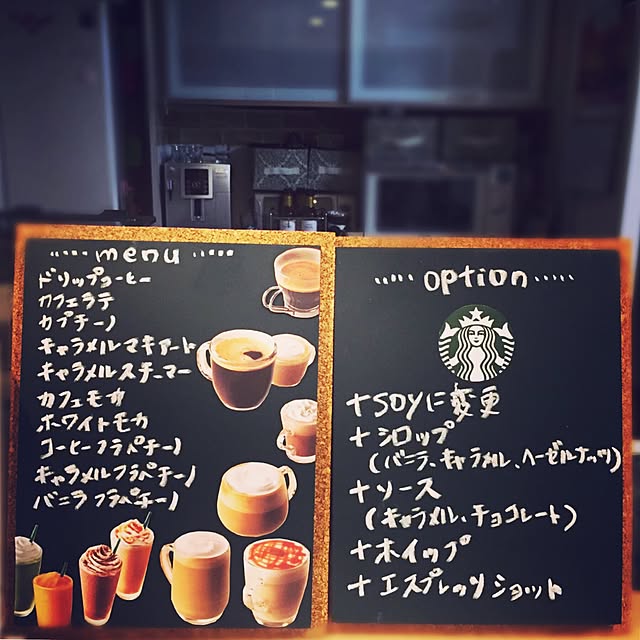 menu
ドリップコーヒー
カフェラテ
カプチーノ
キャラメルマキアート
キャラメルスチーマー
カフェモカ
ホワイトモカ
コーヒーフラペチーノ
キャラメルフラペチーノ
バニラフラペチーノ
option
+SOYに変更
+シロップ
(バニラ、キャラメル、ヘーゼルナッツ)
+ソース
(キャラメル、チョコレート)
+ホイップ
+エスプレッソショット